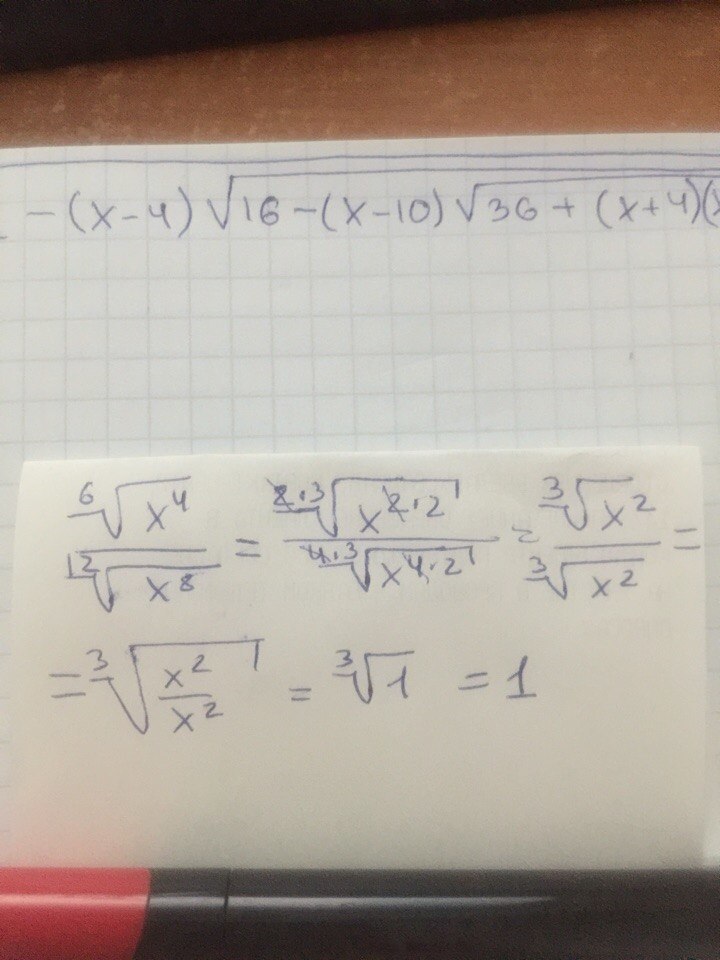 - (x-4) √16 - (x-10) √36 + (x+4)(x
⁶√x⁴ / ¹²√x⁸ = ²·³√x²·² / ⁴·³√x⁴·² = ³√x² / ³√x² =
= ³√(x²/x²) = ³√1 = 1